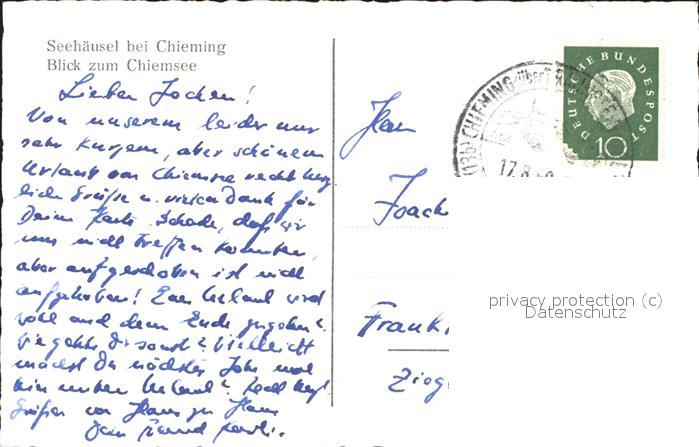 Seehäusel bei Chieming
Blick zum Chiemsee
Lieber Jochen!
Von unserem leider nur
sehr kurzem, aber schönem
Urlaub am Chiemsee recht herz
liche Grüße u. vielen Dank für
Deine Karte. Schade, daß wir
uns nicht treffen konnten,
aber aufgeschoben ist nicht
aufgehoben! Euer Urlaub wird
wohl auch dem Ende zugehen?
Wie geht's Dir sonst? Vielleicht
machst Du nächstes Jahr mal
hier unten Urlaub? Recht herzl.
Grüße von Haus zu Haus
Dein
Joach
Frank
(13b) CHIEMING über
17.8.
DEUTSCHE BUNDESPOST
10
privacy protection (c)
Datenschutz